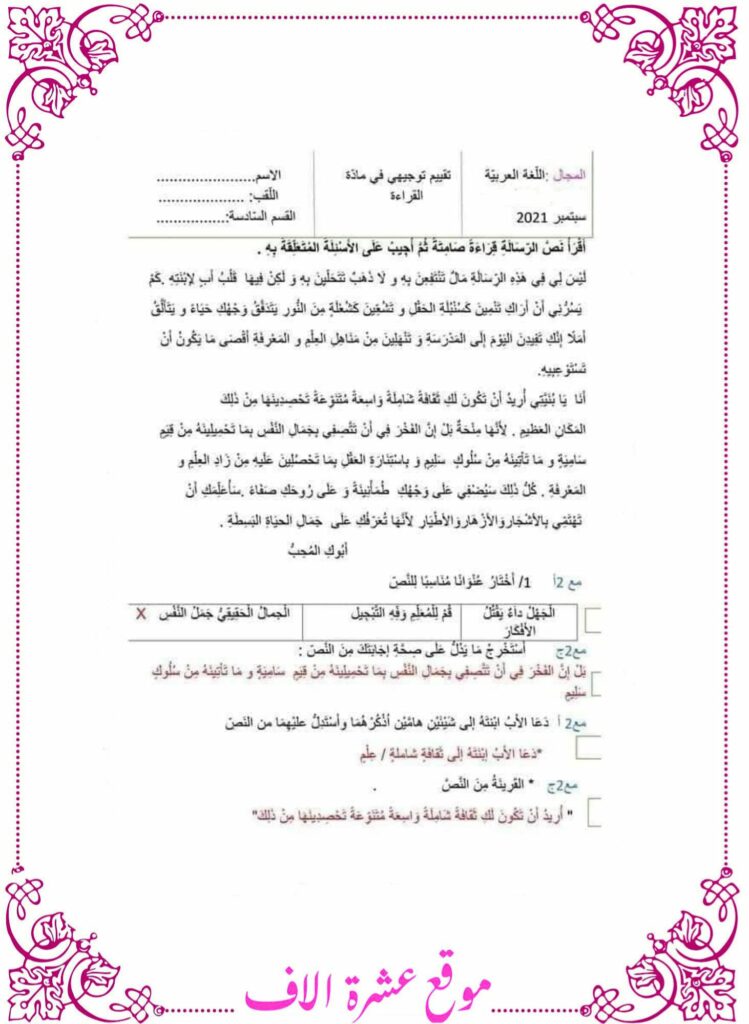 المجال :اللّغة العربيّة
سبتمبر 2021
تقييم توجيهي في مادّة
القراءة
الاسم.......................
اللّقب: ....................
القسم السّادسة:................
أَقْرَأُ نَصَّ الرِّسَالَةِ قِرَاءَةً صَامِتَةً ثُمَّ أُجِيبُ عَلَى الأَسْئِلَةِ المُتَعَلِّقَةِ بِهِ .
لَيْسَ لِي فِي هَذِهِ الرِّسَالَةِ مَالٌ تَنْتَفِعِنَ بِهِ و لَا ذَهَبٌ تَتَحَلَّيْنَ بِهِ وَ لَكِنْ فِيهَا قَلْبُ أَبٍ لِابْنَتِهِ .كَمْ
يَسُرُّنِي أَنْ أَرَاكِ تَنْمِينَ كَسُنْبُلَةِ الحَقْلِ و تَشُعِّينَ كَشُعْلَةٍ مِنَ النُّورِ يَتَدَفَّقُ وَجْهُكِ حَيَاءً و يَتَأَلَّقُ
أَمَلًا إِنَّكِ تَفِيدِنَ اليَوْمَ إِلَى المَدْرَسَةِ وَ تَنْهَلِينَ مِنْ مَنَاهِلِ العِلْمِ و المَعْرِفَةِ أَقْصَى مَا يَكُونُ أَنْ
تَسْتَوْعِبِيهِ.
أَنَا يَا بُنَيَّتِي أُرِيدُ أَنْ تَكُونَ لَكِ ثَقَافَةٌ شَامِلَةٌ وَاسِعَةٌ مُتَنَوِّعَةٌ تَحْصِدِينَهَا مِنْ ذَلِكَ
المَكَانِ العَظِيمِ . لِأَنَّهَا مِنْحَةٌ بَلْ إِنَّ الفَخْرَ فِي أَنْ تَتَّصِفِي بِجَمَالِ النَّفْسِ بِمَا تَحْمِلِينَهُ مِنْ قِيَمٍ
سَامِيَةٍ و مَا تَأْتِينَهُ مِنْ سُلُوكٍ سَلِيمٍ وَ بِاسْتِنَارَةِ العَقْلِ بِمَا تَحْصُلِينَ عَلَيْهِ مِنْ زَادِ العِلْمِ و
المَعْرِفَةِ . كُلُّ ذَلِكَ سَيُضْفِي عَلَى وَجْهِكِ طُمَأْنِينَةً وَ عَلَى رُوحِكِ صَفَاءً .سَأُعَلِّمُكِ أَنْ
تَهْتَمِّي بِالأَشْجَارِوَالأَزْهَارِوَالأَطْيَارِ لِأَنَّهَا تُعَرِّفُكِ عَلَى جَمَالِ الحَيَاةِ البَسِطَةِ .
أَبُوكِ المُحِبُّ
مع 2أ 1/ أَخْتَارُ عُنْوَانًا مُنَاسِبًا لِلنَّصّ
الْجَهْلُ دَاءٌ يَقْتُلُ الأَفْكَارَ
قُمْ لِلْمُعَلِّمِ وَفِّهِ التَّبْجِيلَ
الْجمالُ الْحَقِيقِيُّ جَمَلُ النَّفْسِ X
مع2ج أَسْتَخْرِجُ مَا يَدُلُّ عَلَى صِحَّةِ إِجَابَتَكَ مِنَ النَّصّ :
بَلْ إِنَّ الفَخْرَ فِي أَنْ تَتَّصِفِي بِجَمَالِ النَّفْسِ بِمَا تَحْمِلِينَهُ مِنْ قِيَمٍ سَامِيَةٍ و مَا تَأْتِينَهُ مِنْ سُلُوكٍ
سَلِيمٍ
مع2 أ دَعَا الأَبُ ابنتَهُ إلى شَيْئَيْنِ هامَّيْنِ أذْكُرْهُمَا وأسْتَدِلُّ عليْهِمَا من النَصّ
*دَعَا الأَبُ اِبْنَتَهُ إلى ثَقَافةٍ شاملةٍ / عِلْمٍ
مع2ج * القرينَةُ مِنَ النَّصِّ .
" أُرِيدُ أَنْ تَكُونَ لَكِ ثَقَافَةٌ شَامِلَةٌ وَاسِعَةٌ مُتَنَوِّعَةٌ تَحْصِدِينَهَا مِنْ ذَلِكَ"
موقع عشرة الاف